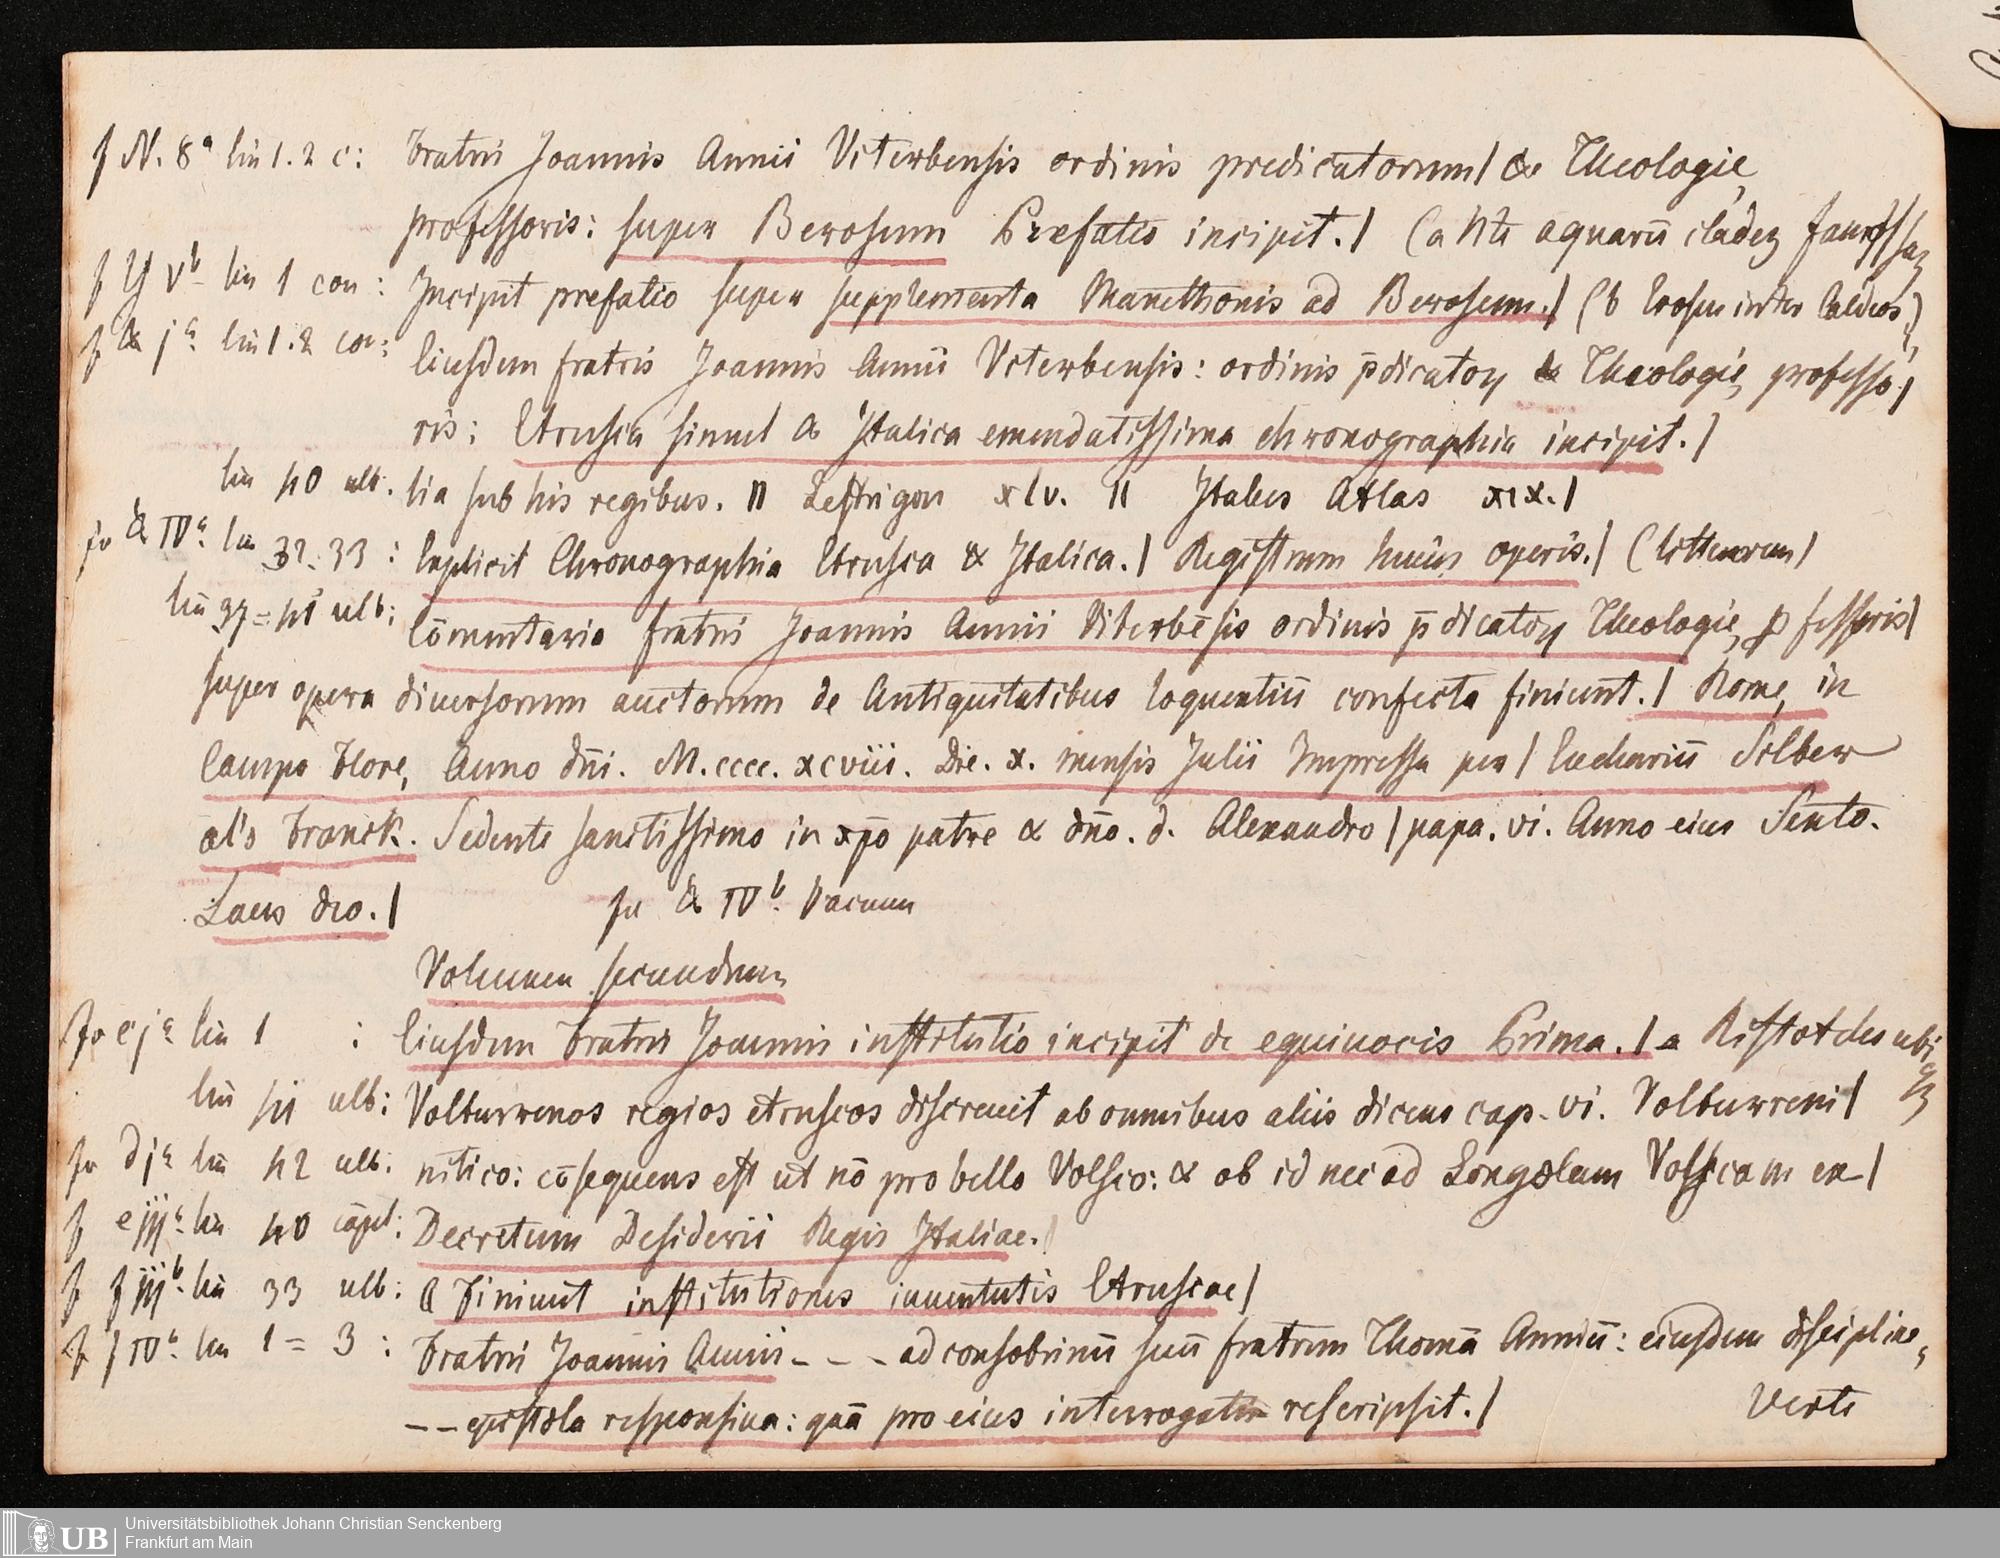 f N. 8ᵃ lin 1. 2 c: Fratris Joannis Annii Viterbensis ordinis predicatorum| & Theologię
professoris: super Berosum Prefatio incipit.| (a Nte aquarū cladeʒ famosʃaʒ
f Y Vᵇ lin 1 con: Incipit prefatio super supplementa Manethonis ad Berosum.| (b Erosus inter Caldeos)
f & jᵃ lin 1.2 con: Eiusdem fratris Joannis Annii Viterbensis: ordinis p̄dicatoꝝ & Theologię professo|
ris: Etrusca simul & Italica emendatissima chronographia incipit.|
lin 40 ult. lia sub his regibus. || Lestrigon xlv. || Italus Atlas xix.|
fo & IVᵃ lin 32. 33: Explicit Chronographia Etrusca & Italica.| Registrum huius operis.| (litterarum)
lin 37=41 ult: Cōmentaria fratris Joannis Annii Viterbēsis ordinis p̄dicatoꝝ Theologię ꝓfessoris|
super opera diuersorum auctorum de Antiquitatibus loquentiū confecta finiunt.| Romę in
Campo Florę Anno dn̄i. M.cccc.xcviii. Die. x. mensis Julii Impressa per| Eucharium Silber
al's Franck. Sedente sanctissimo in xp̄o patre & dn̄o. d. Alexandro| papa. vi. Anno eius Sexto.
Laus deo.| fo & IVᵇ. Vacuum
Volumen secundum
fo e jᵃ lin 1 : Eiusdem Fratris Joannis institutio incipit de equiuocis Prima.| a Ristoteles ubiqʒ
lin 41 ult: Volturrenos regios etruscos discreuit ab omnibus aliis dicens cap. vi. Volturreni|
fo d jᵃ lin 42 ult. nitico: cōsequens est ut nō pro bello Volsco: & ob id nec ad Longolam Volscam ex|
f e iijᵃ lin 40 capit: Decretum Desiderii Regis Italiae.|
f f iijᵇ lin 33 ult: ¶ Finiunt institutiones iuuentutis Etruscae|
f f IVᵃ lin 1=3 : Fratris Joannis Annii - - - ad consobrinū suū fratrem Thomā Anniū: eiusdem disciplinę
- - epistola responsiua: quā pro eius interrogatis rescripsit.| Verte
Universitätsbibliothek Johann Christian Senckenberg
UB
Frankfurt am Main